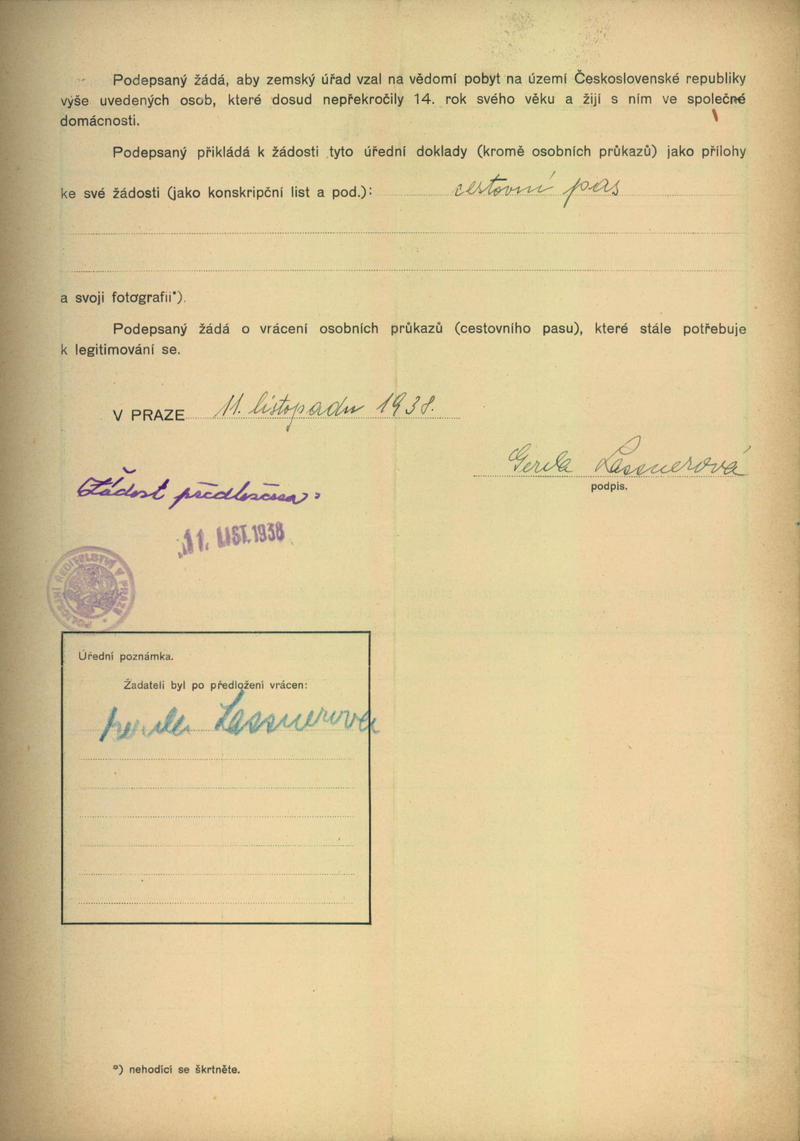 Podepsaný žádá, aby zemský úřad vzal na vědomí pobyt na území Československé republiky
výše uvedených osob, které dosud nepřekročily 14. rok svého věku a žijí s ním ve společné
domácnosti.
Podepsaný přikládá k žádosti tyto úřední doklady (kromě osobních průkazů) jako přílohy
ke své žádosti (jako konskripční list a pod.): cestovní pas
a svoji fotografii*).
Podepsaný žádá o vrácení osobních průkazů (cestovního pasu), které stále potřebuje
k legitimování se.
V PRAZE 11. listopadu 1938.
Gerda Lassnerová
podpis.
Žádost předložena:
11. LIST. 1938
POLICEJNÍ ŘEDITELSTVÍ V PRAZE
Úřední poznámka.
Žadateli byl po předložení vrácen:
Gerda Lassnerová
*) nehodící se škrtněte.